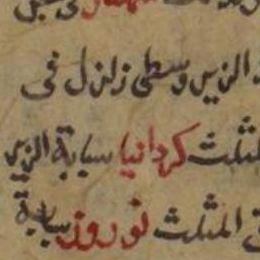 الزير وسطى زلزل فى
المثلث كردانيا سبابة الزير
المثلث نوروز سبابة